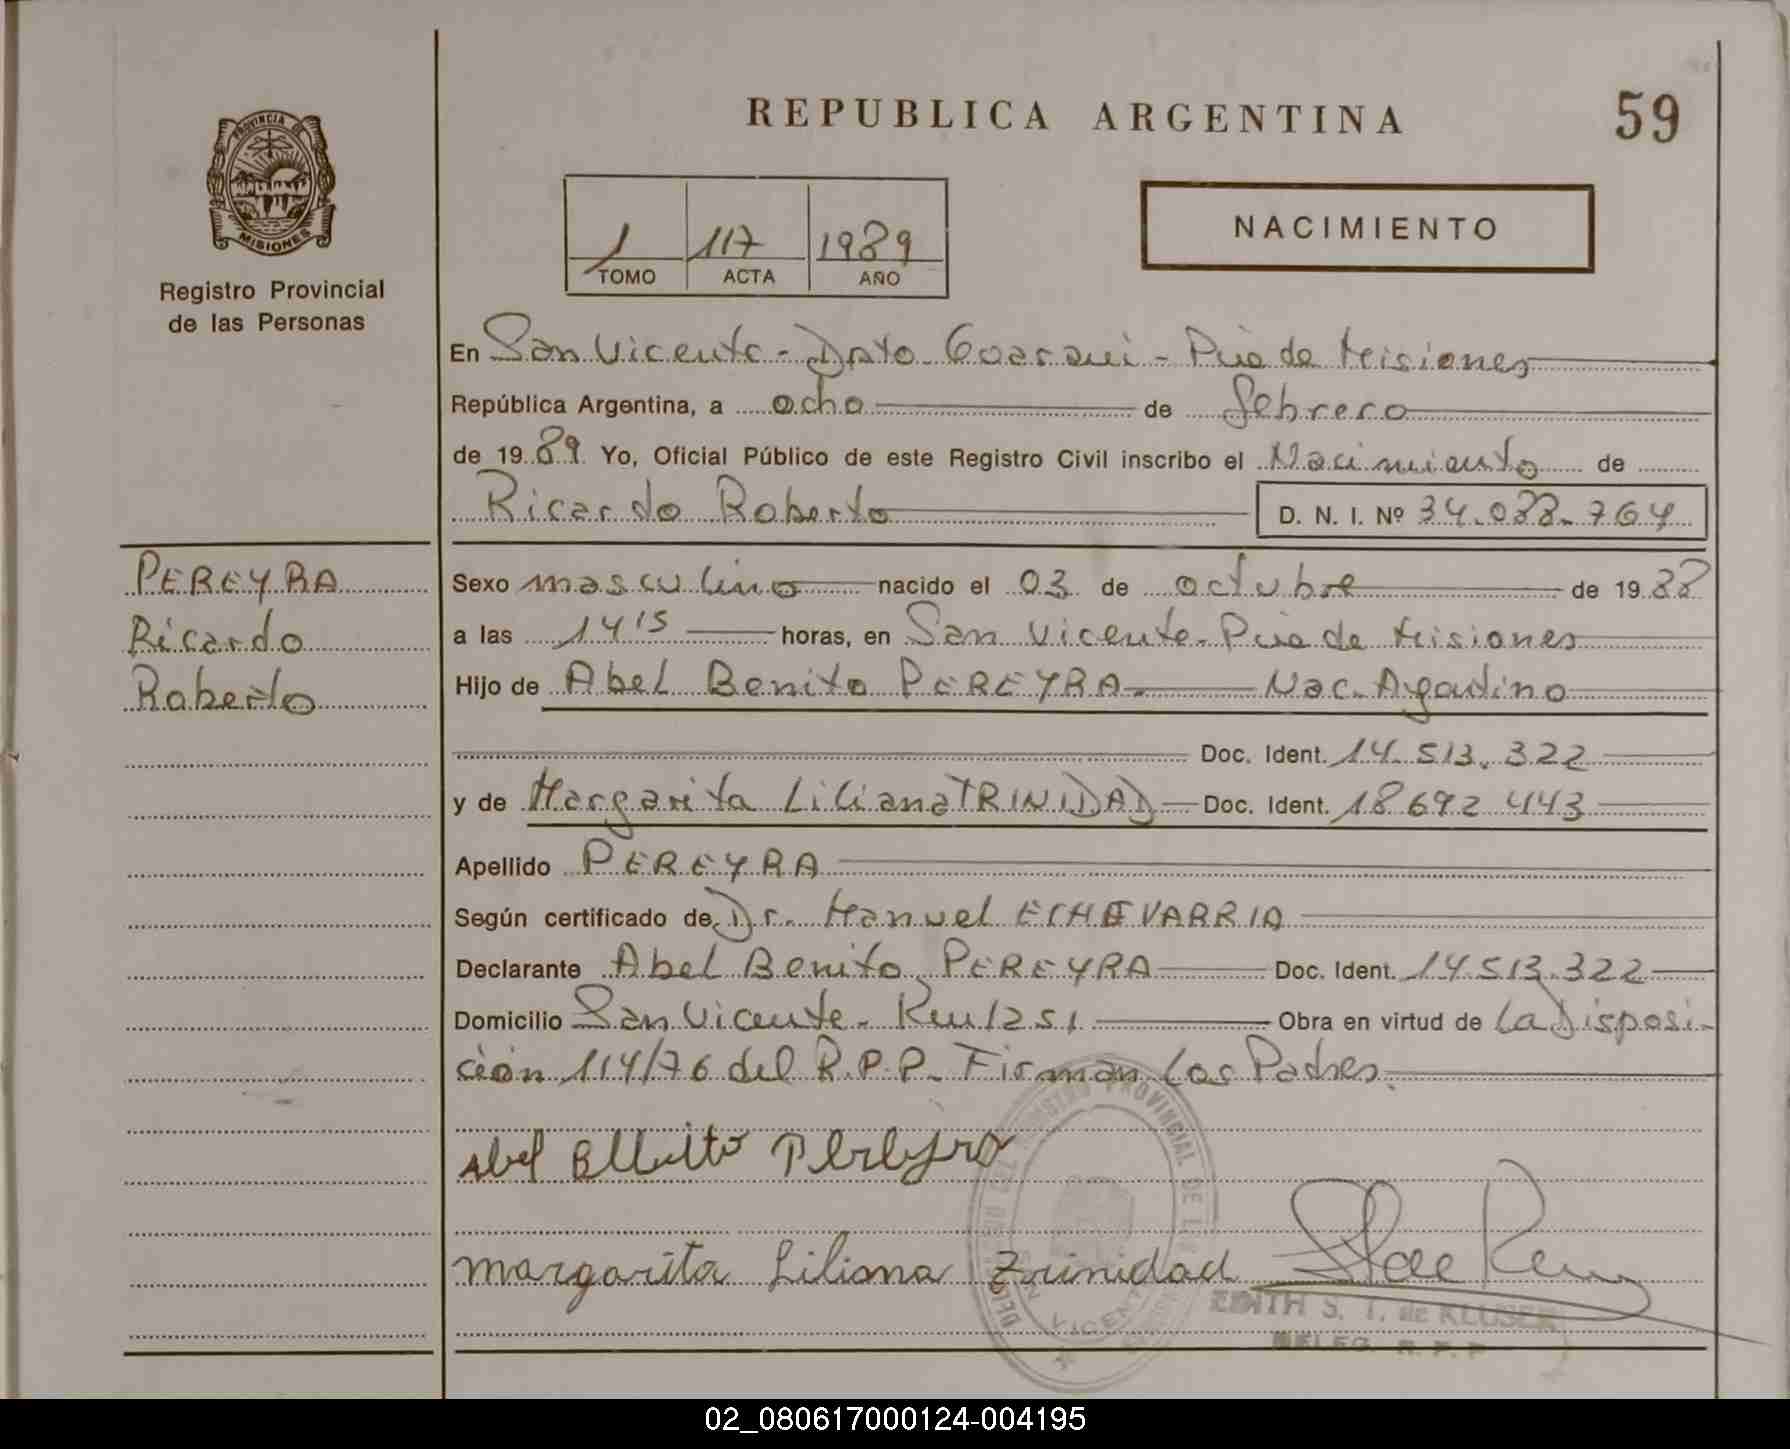 REPUBLICA ARGENTINA
59
PROVINCIA DE
MISIONES
Registro Provincial
de las Personas
1 117 1989
TOMO ACTA AÑO
NACIMIENTO
En San Vicente - Dpto Guaraní - Pcia de Misiones
República Argentina, a ocho de febrero
de 1989 Yo, Oficial Público de este Registro Civil inscribo el Nacimiento de
Ricardo Roberto D. N. I. Nº 34.088.764
PEREYRA
Ricardo
Roberto
Sexo masculino nacido el 03 de octubre de 1988
a las 14 15 horas, en San Vicente - Pcia de Misiones
Hijo de Abel Benito PEREYRA Nac. Argentino
Doc. Ident. 14.513.322
y de Margarita Liliana TRINIDAD Doc. Ident. 18.692.443
Apellido PEREYRA
Según certificado de Dr. Manuel ECHEVARRIA
Declarante Abel Benito PEREYRA Doc. Ident. 14.513.322
Domicilio San Vicente - Km 1251 Obra en virtud de La Disposi-
ción 114/76 del R.P.P. Firman Los Padres.
Abel Benito Pereyra
Margarita Liliana Trinidad
EDITH S. T. de KLUSER
DELEG. R. P. P.
02_080617000124-004195